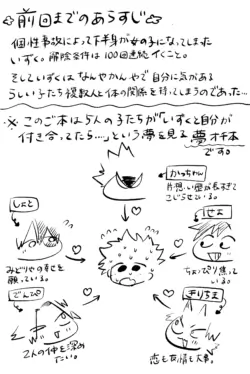 前回までのあらすじ
個性事故によって下半身が女の子になってしまった
いずく。解除条件は100回連続イくこと。
そしていずくはなんやかんやで自分に気がある
らしい子たち複数人と体の関係を持ってしまうのであった…
※このご本は5人の子たちが「いずくと自分が
付き合ってたら…」という夢を見る夢オチ本
です。
かっちゃん
片想い歴が長すぎて
こじらせている。
しょと
みどりやの幸せを
願っている。
いせよ
ちょっぴり焦って
いる。
でんぴ
2人の仲を深め
たい。
きりちま
恋も友情も大事。